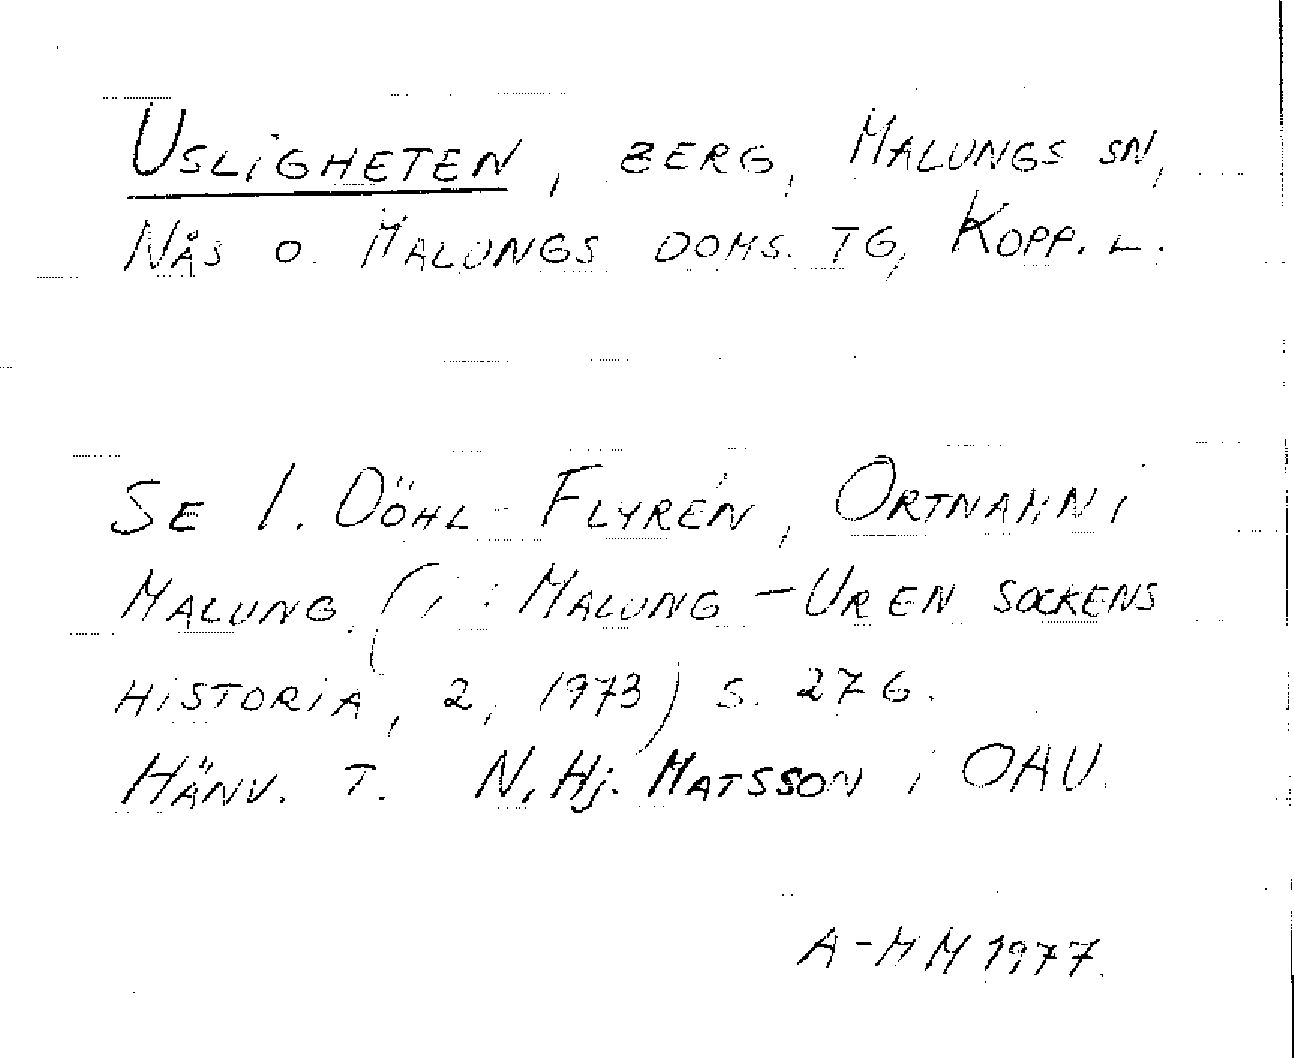 USLIGHETEN, BERG, MALUNGS SN,
NÅS O. MALUNGS DOMS. TG, KOPP. L.
SE I. DÖHL-FLYRÉN, ORTNAMN I
MALUNG. (I: MALUNG - UR EN SOCKENS
HISTORIA, 2, 1973) S. 276.
HÄNV. T. N. Hj. MATSSON i OAU.
A-MM 1977.